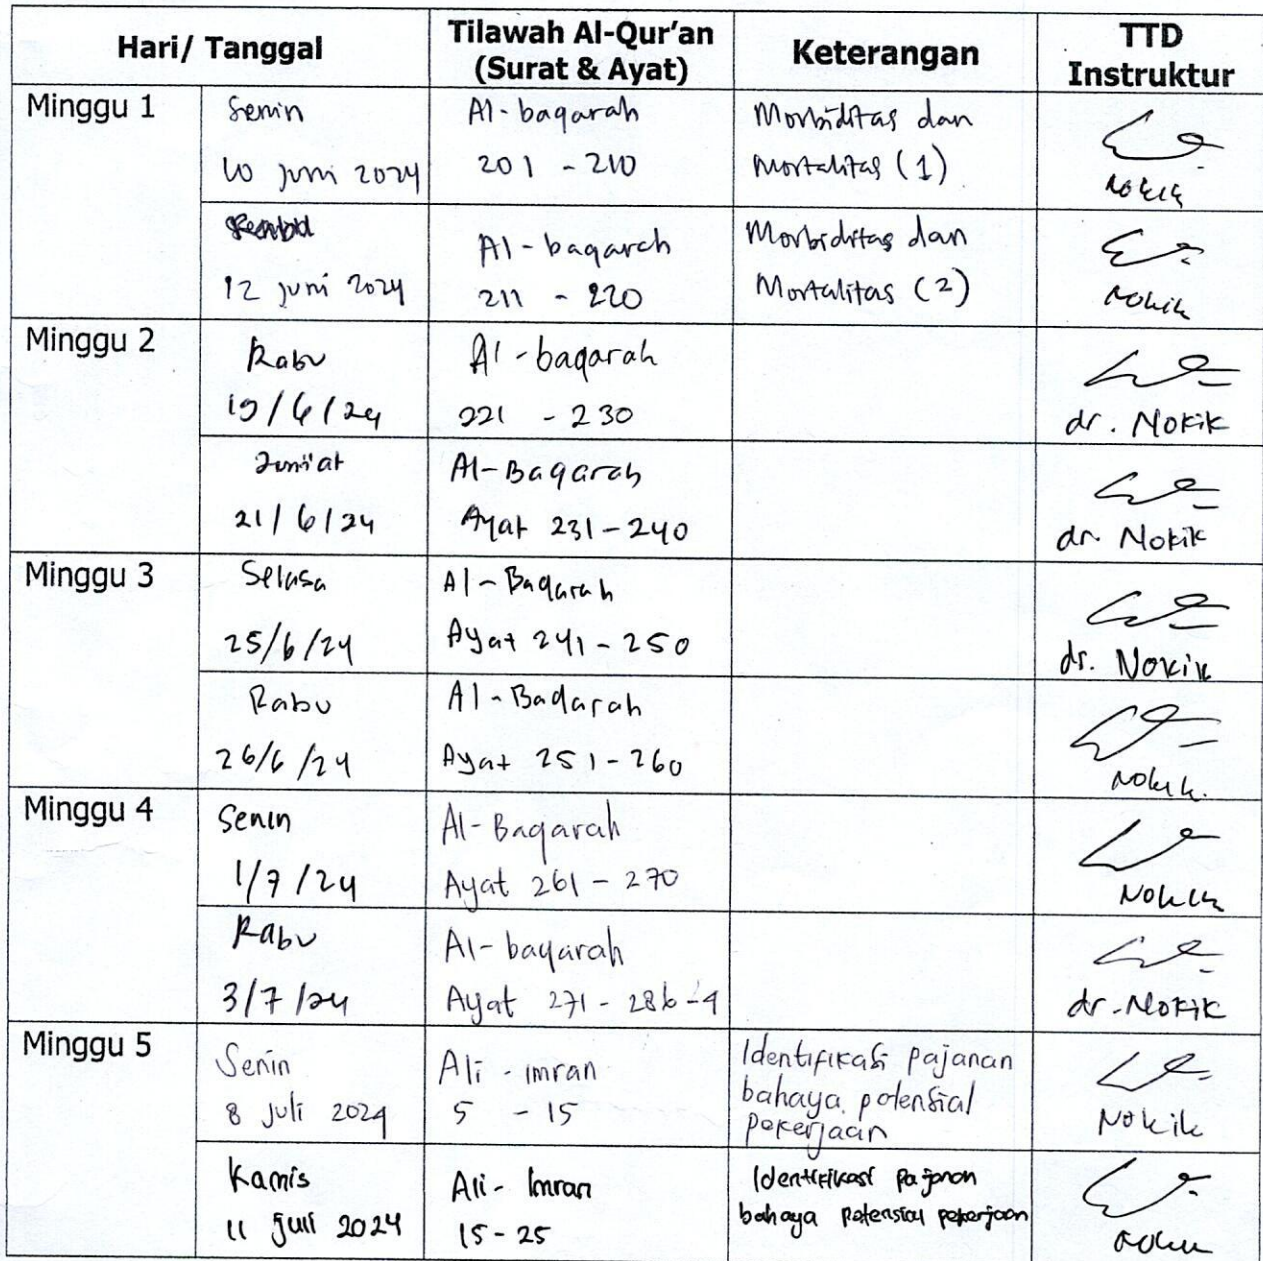 Hari/ Tanggal
Tilawah Al-Qur'an
(Surat & Ayat)
Keterangan
TTD
Instruktur
Minggu 1
Senin
10 Juni 2024
Al-baqarah
201 - 210
Morbiditas dan
Mortalitas (1)
Nokik
12 Juni 2024
Al-baqarah
211 - 220
Morbiditas dan
Mortalitas (2)
Nokik
Minggu 2
Rabu
19/6/24
Al-baqarah
221 - 230
dr. Nokik
Jum'at
21/6/24
Al-Baqarah
Ayat 231-240
dr. Nokik
Minggu 3
Selasa
25/6/24
Al-Baqarah
Ayat 241-250
dr. Nokik
Rabu
26/6/24
Al-Baqarah
Ayat 251-260
Nokik.
Minggu 4
Senin
1/7/24
Al-Baqarah
Ayat 261-270
Nokik
Rabu
3/7/24
Al-baqarah
Ayat 271-286-4
dr. Nokik
Minggu 5
Senin
8 Juli 2024
Ali-imran
5 - 15
Identifikasi pajanan
bahaya potensial
pekerjaan
Nokik
Kamis
11 Juli 2024
Ali-Imran
15-25
Identifikasi pajanan
bahaya potensial pekerjaan
Nokik